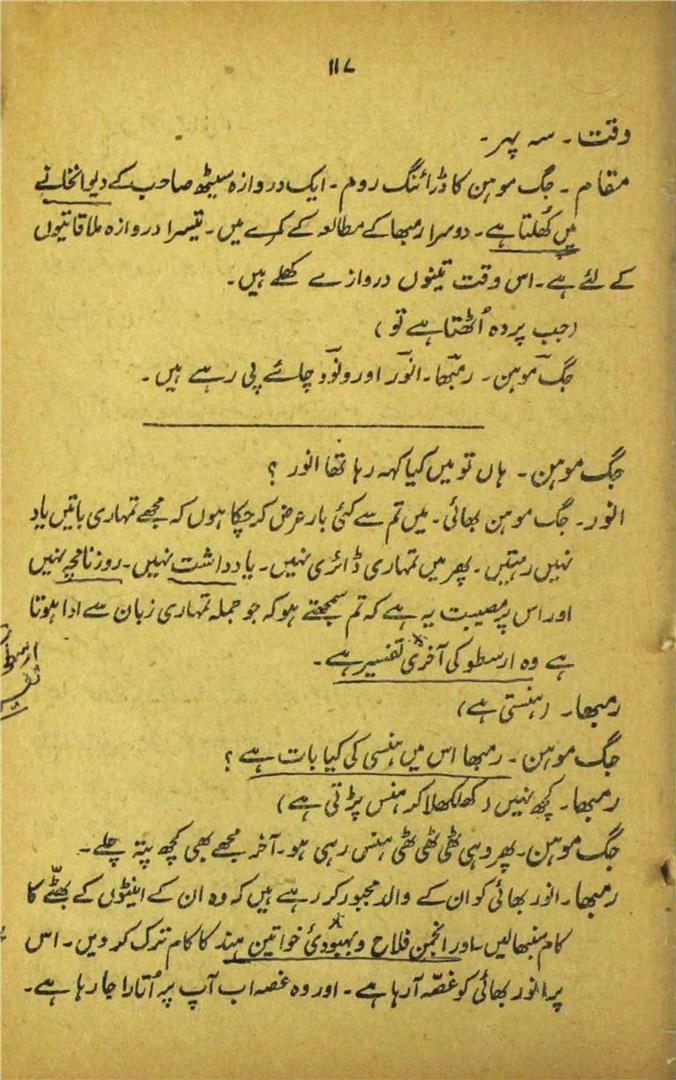 ۱۱۷
وقت۔ سہ پہر۔
مقام۔ جگ موہن کا ڈرائنگ روم۔ ایک دروازہ سیٹھ صاحب کے دیوانخانے
میں کُھلتا ہے۔ دوسرا رمبھا کے مطالعہ کے کمرے میں۔ تیسرا دروازہ ملاقاتیوں
کے لئے ہے۔ اس وقت تینوں دروازے کھلے ہیں۔
(جب پردہ اُٹھتا ہے تو)
جگ موہن۔ رمبھا۔ انور اور ونود چائے پی رہے ہیں۔
جگ موہن۔ ہاں تو میں کیا کہہ رہا تھا انور ؟
انور۔ جگ موہن بھائی۔ میں تم سے کئی بار عرض کر چکا ہوں کہ مجھے تمہاری باتیں یاد
نہیں رہتیں۔ پھر میں تمہاری ڈائری نہیں۔ یادداشت نہیں۔ روزنامچہ نہیں
اور اس پر مصیبت یہ ہے کہ تم سمجھتے ہو کہ جو جملہ تمہاری زبان سے ادا ہوتا
ہے وہ ارسطو کی آخری تفسیر ہے۔
ارسطو
رمبھا۔ (ہنستی ہے)
جگ موہن۔ رمبھا اس میں ہنسی کی کیا بات ہے ؟
رمبھا۔ کچھ نہیں (کھلکھلا کر ہنس پڑتی ہے)
جگ موہن۔ پھر وہی ٹھی ٹھی ٹھی ہنس رہی ہو۔ آخر مجھے بھی کچھ پتہ چلے۔
رمبھا۔ انور بھائی کو ان کے والد مجبور کر رہے ہیں کہ وہ ان کے اینٹوں کے بھٹّے کا
کام سنبھالیں۔ اور انجمن فلاح و بہبودیٔ خواتین ہند کا کام ترک کر دیں۔ اس
پر انور بھائی کو غصّہ آ رہا ہے۔ اور وہ غصہ اب آپ پر اُتارا جا رہا ہے۔